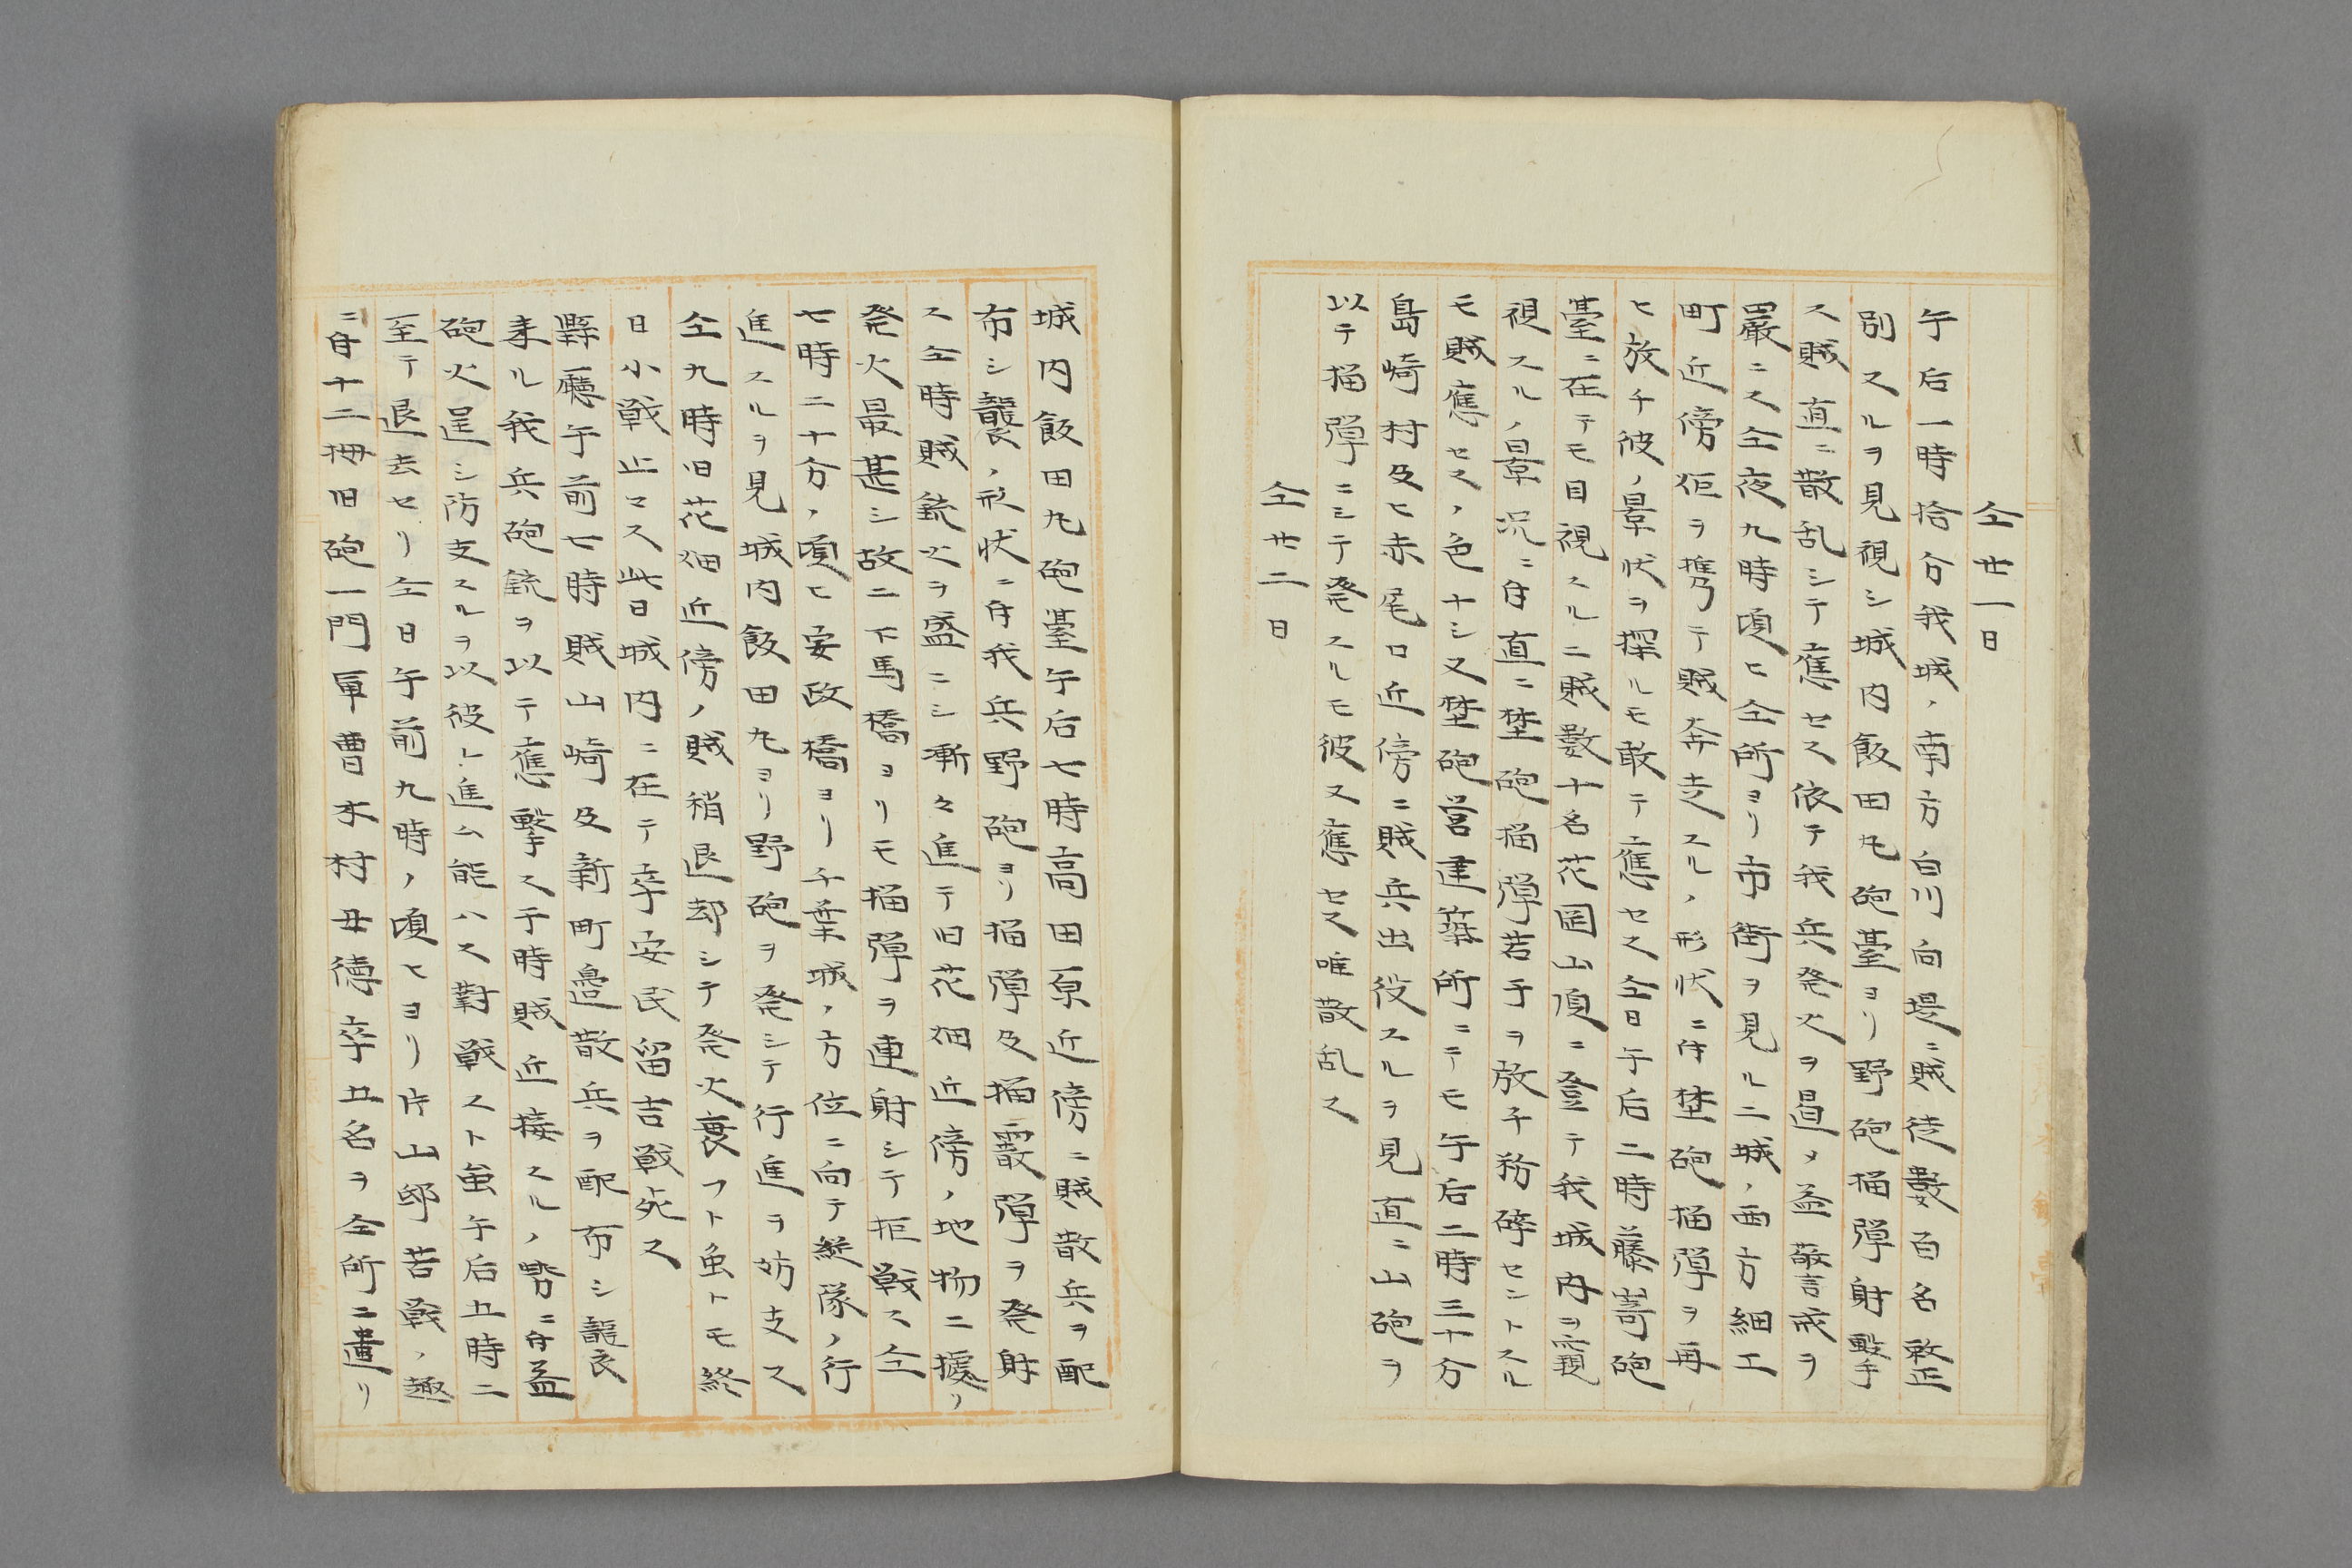 仝廿一日
午后一時拾分我城ノ南方白川向堤ニ賊徒数百名整
別スルヲ見視シ城内飯田丸砲臺ヨリ野砲榴弾射撃
ス賊直ニ散乱シテ應セス依テ我兵発火ヲ遏メ益警戒ヲ
嚴ニス仝夜九時頃ヒ仝所ヨリ市街ヲ見ルニ城ノ西方細工
町近傍炬ヲ携テ賊奔走スルノ形状ニ付埜砲榴弾ヲ再
ヒ放チ彼ノ景状ヲ探ルモ敢テ應セス仝日午后二時藤嵜砲
臺ニ在テモ目視スルニ賊数十名花岡山頂ニ登テ我城内ヲ窺
視スルノ景況ニ付直ニ埜砲榴弾若干ヲ放チ粉砕セントスル
モ賊應セスノ色ナシ又埜砲営建築所ニテモ午后二時三十分
島崎村及ヒ赤尾口近傍ニ賊兵出役スルヲ見直ニ山砲ヲ
以テ榴弾ニシテ発スルモ彼又應セス唯散乱ス
仝廿二日
城内飯田丸砲臺午后七時高田原近傍ニ賊散兵ヲ配
布シ襲ノ形状ニ付我兵野砲ヨリ榴弾及榴霰弾ヲ発射
ス仝時賊銃火ヲ盛ニシ漸々進テ旧花畑近傍ノ地物ニ據リ
発火最甚シ故ニ下馬橋ヨリモ榴弾ヲ連射シテ拒戦ス仝
七時二十分ノ頃ヒ安政橋ヨリ千葉城ノ方位ニ向テ縦隊ノ行
進スルヲ見城内飯田丸ヨリ野砲ヲ発シテ行進ヲ妨支ス
仝九時旧花畑近傍ノ賊稍退却シテ発火衰フト虽トモ終
日小戦止マス此日城内ニ在テ卒安民留吉戦死ス
縣廳午前七時賊山崎及新町邉散兵ヲ配布シ襲
来ル我兵砲銃ヲ以テ應撃ス于時賊近接スルノ勢ニ付益
砲火逞シ防支スルヲ以彼レ進ム能ハス對戦スト虽午后五時ニ
至テ退去セリ仝日午前九時ノ頃ヒヨリ片山邸苦戦ノ趣
ニ付十二拇旧砲一門軍曹木村丑徳卒五名ヲ仝所ニ連リ